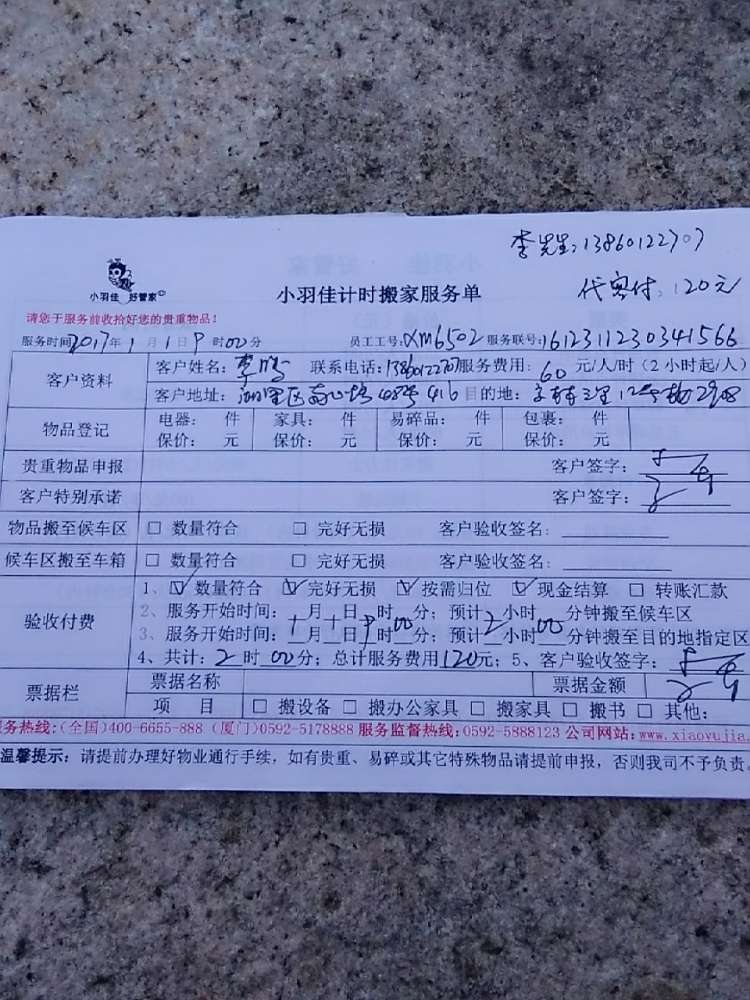 李先生:13860122707
代客付:120元
小羽佳 好管家
小羽佳计时搬家服务单
请您于服务前收拾好您的贵重物品!
服务时间2017年1月1日9时00分 员工工号:XM6502 服务联号:1612311230341566
客户资料 客户姓名:李 联系电话:13860122707服务费用:60元/人/时(2小时起/人)
客户地址:湖里区 48号416 目的地:
物品登记 电器: 件 家具: 件 易碎品: 件 包裹: 件
保价: 元 保价: 元 保价: 元 保价: 元
贵重物品申报 客户签字:
客户特别承诺 客户签字:
物品搬至候车区 □ 数量符合 □ 完好无损 客户验收签名:
候车区搬至车箱 □ 数量符合 □ 完好无损 客户验收签名:
验收付费 1、☑数量符合 ☑完好无损 ☑按需归位 ☑现金结算 □ 转账汇款
2、服务开始时间: 月 日 时 分;预计 小时 分钟搬至候车区
3、服务开始时间:1月1日9时00分;预计2小时00分钟搬至目的地指定区
4、共计:2时00分;总计服务费用120元;5、客户验收签字:
票据栏 票据名称 票据金额
项 目 □ 搬设备 □ 搬办公家具 □ 搬家具 □ 搬书 □ 其他:
务热线:(全国)400-6655-888 (厦门)0592-5178888 服务监督热线:0592-5888123 公司网站:www.xiaoyujia.
温馨提示:请提前办理好物业通行手续,如有贵重、易碎或其它特殊物品请提前申报,否则我司不予负责。